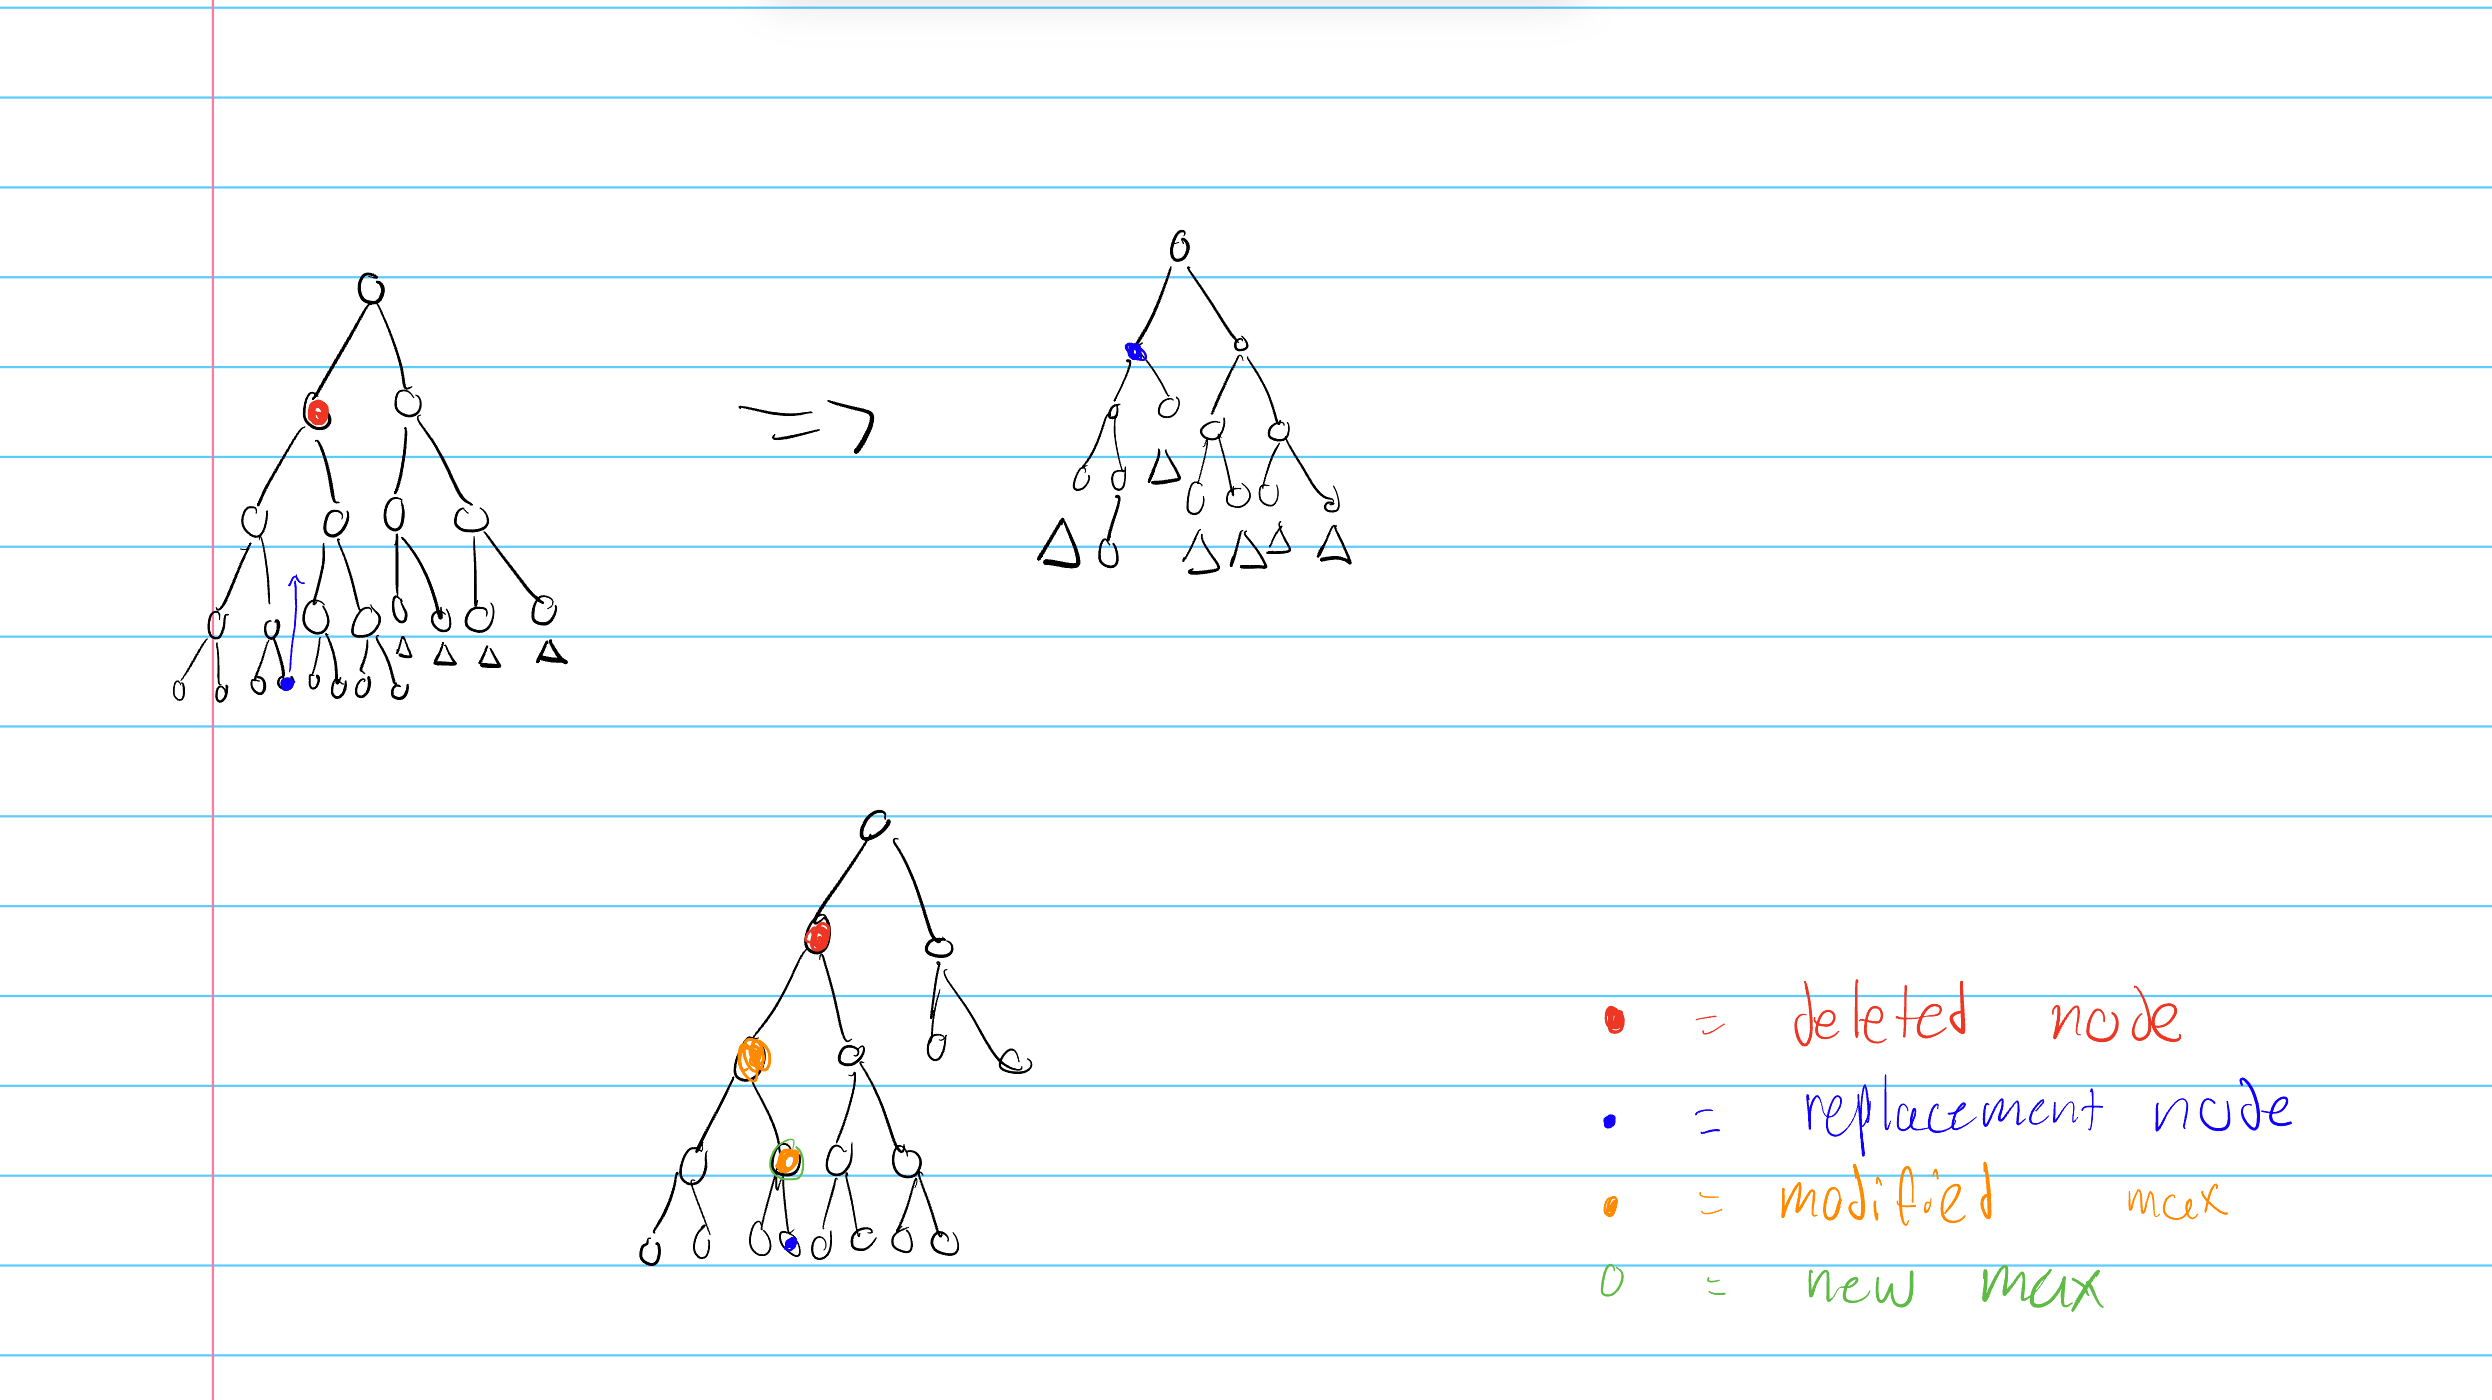 =>
= deleted node
= replacement node
= modified max
= new max